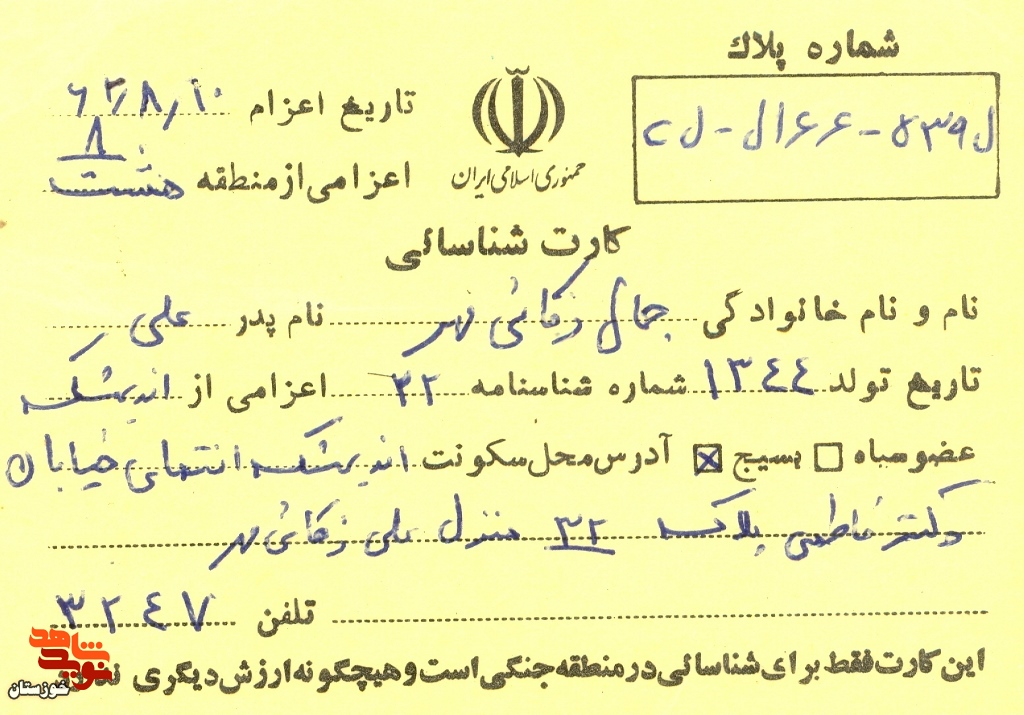 شماره پلاك
تاریخ اعزام ۶۲/۸/۱۰
۸
اعزامی از منطقه هشت
جمهوری اسلامی ایران
کارت شناسائی
نام و نام خانوادگی جمال زکائی مهر نام پدر علی
تاریخ تولد ۱۳٤٤ شماره شناسنامه ۲۲ اعزامی از اندیمشک
عضو سپاه بسیج آدرس محل سکونت اندیمشک انتهای خیابان
دکتر فاطمی پلاک ۳۲ منزل علی زکائی مهر
تلفن ۳۲٤۷
این کارت فقط برای شناسائی در منطقه جنگی است و هیچگونه ارزش دیگری
نوید شاهد
خوزستان